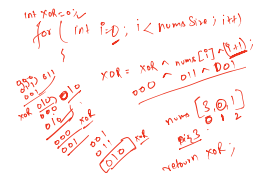 int XOR=0;
for ( int i=0; i < numsSize; i++)
{
XOR = XOR ^ nums[i] ^ (i+1);
000 ^ 011 ^ 001
011
001
XOR 010
000
010
XOR
000
001
001
011
010
XOR
nums [3,0,1]
0 1 2
return XOR;